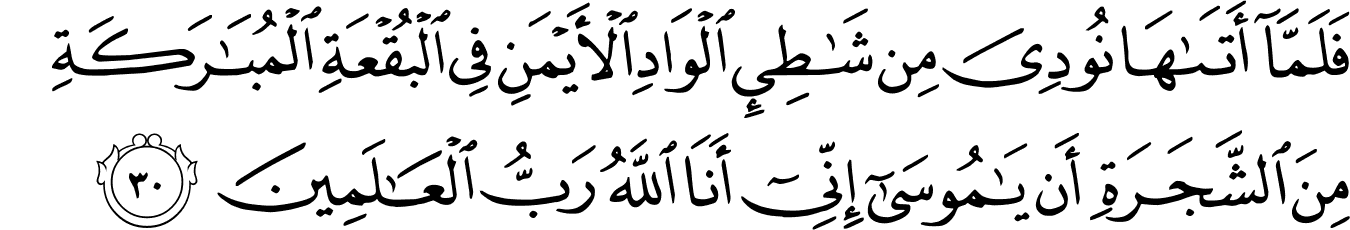 فَلَمَّآ أَتَىٰهَا نُودِىَ مِن شَـٰطِئِ ٱلْوَادِ ٱلْأَيْمَنِ فِى ٱلْبُقْعَةِ ٱلْمُبَـٰرَكَةِ
مِنَ ٱلشَّجَرَةِ أَن يَـٰمُوسَىٰٓ إِنِّىٓ أَنَا ٱللَّهُ رَبُّ ٱلْعَـٰلَمِينَ ٣٠